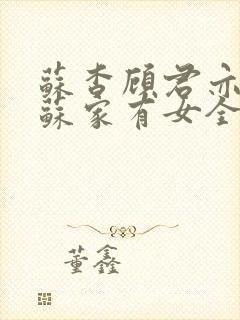 蘇杏顧君亦
蘇家有女全
董鑫